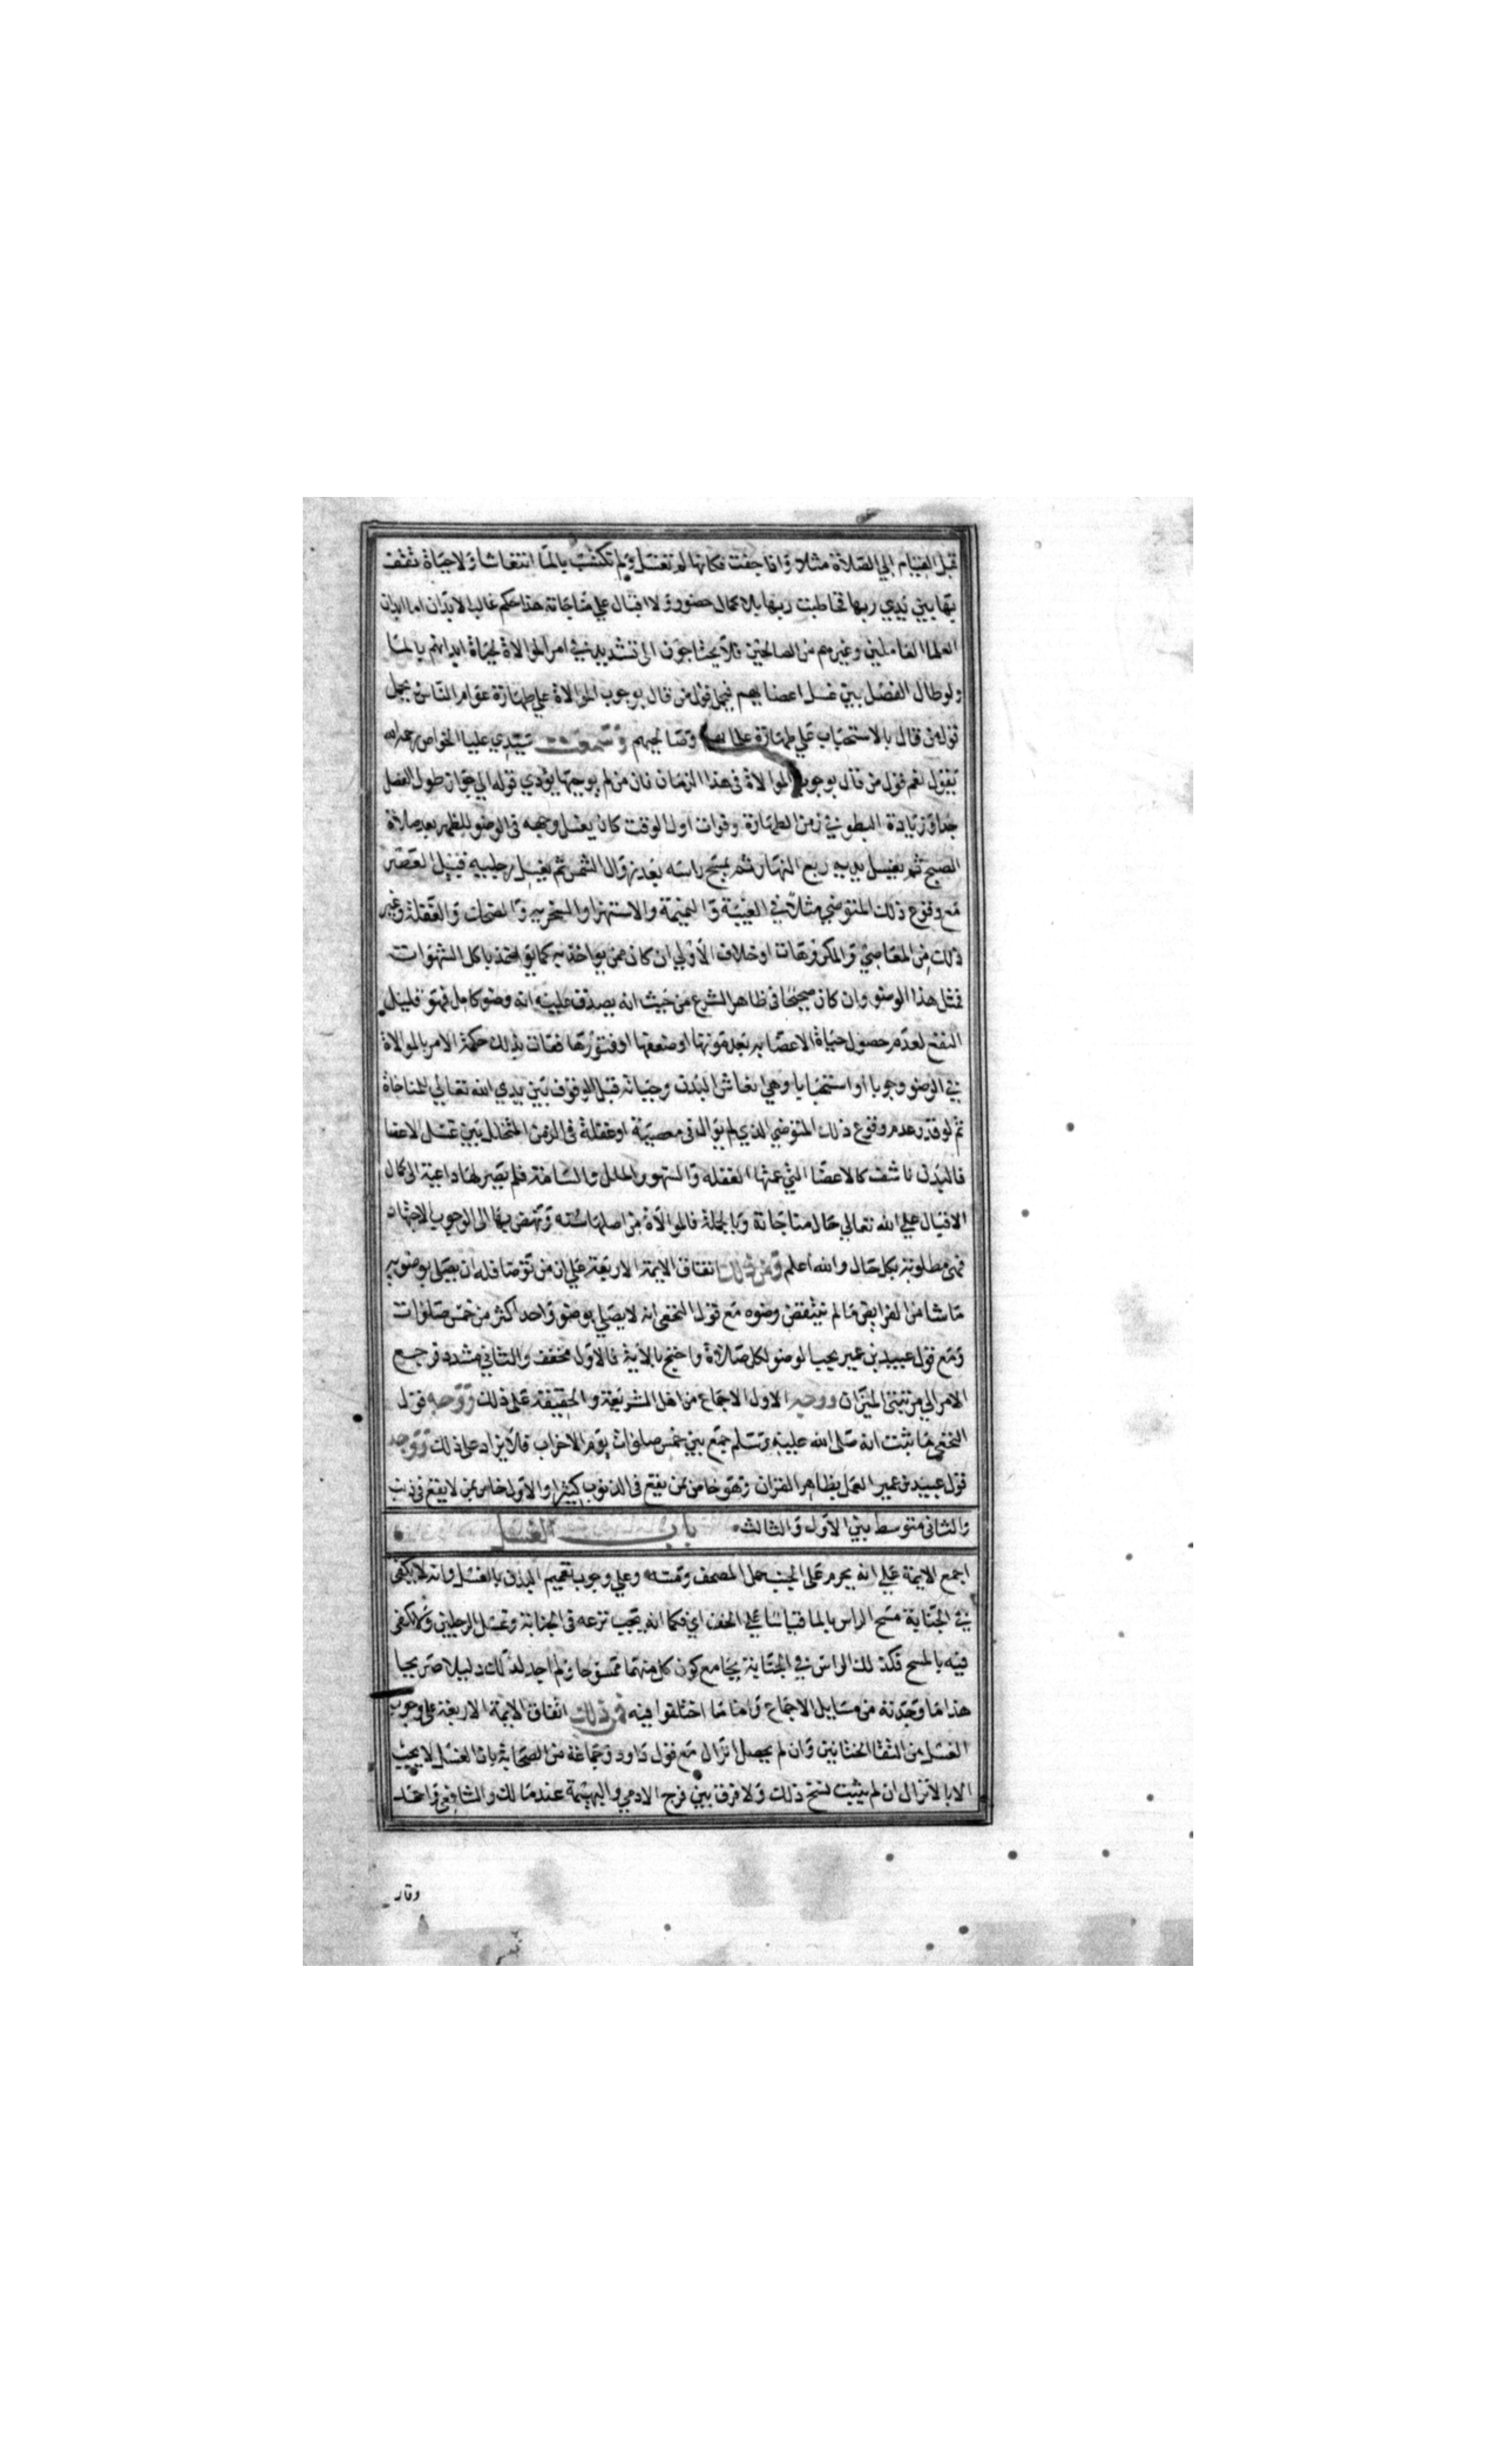 قبل القيام الي الصلاة مثلا واذا جفت فكانها لم تغسل ولم تكتسب بالما انتعاشا ولا حياة تقف
بها بين يدي ربها فخاطبت ربها بلا كمال حضور ولا اقبال علي مناجاته هذا حكم غالب الابدان اما ابدان
العلما العاملين وغيرهم من الصالحين فلا يحتاجون الى تشديد في امر الموالاة لحياة ابدانهم بالما
ولو طال الفصل بين غسل اعضايهم فيحمل قول من قال بوجوب الموالاة علي طهارة عوام الناس ويحمل
قول من قال بالاستحباب علي طهارة علمايهم وصالحيهم وسمعت سيدي عليا الخواص رحمه الله
يقول نعم قول من قال بوجوب الموالاة فى هذا الزمان فان من لم يوجبها يؤدي قوله الي جواز طول الفصل
جدا وزيادة البطو في زمن الطهارة وفوات اول الوقت كان يغسل وجهه فى الوضو للظهر بعد صلاة
الصبح ثم يغسل يديه ربع النهار ثم يمسح راسه بعد زوال الشمس ثم يغسل رجليه قبيل العصر
مع وقوع ذلك المتوضي مثلا في الغيبة والنميمة والاستهزا والسخرية والضحك والغفلة وغير
ذلك من المعاصي والمكروهات او خلاف الاولي ان كان ممن يواخذ به كما يواخذ باكل الشهوات
فمثل هذا الوضو وان كان صحيحا فى ظاهر الشرع من حيث انه يصدق عليه انه وضو كامل فهو قليل
النفع لعدم حصول حياة الاعضا به بعد موتها او ضعفها او فتورها ففات بذلك حكمة الامر بالموالاة
في الوضو وجوبا او استحبابا وهي انعاش البدن وحياته قبل الوقوف بين يدي الله تعالي للمناجاة
ثم لو قدر عدم وقوع ذلك المتوضي الذي لم يوال فى معصية او غفلة فى الزمن المتخلل بين غسل الاعضا
فالبدن ناشف كالاعضا التي عمتها الغفلة والسهو والملل والسامة فلم يصر لها داعية الى كمال
الاقبال علي الله تعالي حال مناجاته وبالجملة فالموالاة من اصلها سنة وتنهض بها الى الوجوب الاجتهاد
فهى مطلوبة بكل حال والله اعلم ومن ذلك اتفاق الايمة الاربعة علي ان من توضا فله ان يصلي بوضويه
ما شا من الفرايض ما لم ينتقض وضوه مع قول النخعى انه لا يصلي بوضو واحد اكثر من خمس صلوات
ومع قول عبيد بن عمير يجب الوضو لكل صلاة واحتج بالاية فالاول مخفف والثاني مشدد فرجع
الامر الي مرتبتى الميزان ووجه الاول الاجماع من اهل الشريعة والحقيقة على ذلك ووجه قول
النخعى ما ثبت انه صلى الله عليه وسلم جمع بين خمس صلوات يوم الاحزاب فلا يزاد على ذلك ووجه
قول عبيد بن عمير العمل بظاهر القران وهو خاص بمن يقع فى الذنوب كثيرا والاول خاص بمن لا يقع فى ذنب
والثانى متوسط بين الاول والثالث باب الغسل
اجمع الايمة علي انه يحرم على الجنب حمل المصحف ومسه وعلي وجوب تعميم البدن بالغسل وانه لا يكفى
في الجنابة مسح الراس بالما قياسا علي الخف اي فكما انه يجب نزعه فى الجنابة وغسل الرجلين ولا يكفى
فيه بالمسح فكذلك الراس في الجنابة بجامع كون كل منهما ممسوحا ولم اجد لذلك دليلا صريحا
هذا ما وجدته من مسايل الاجماع واما ما اختلفوا فيه فمن ذلك اتفاق الايمة الاربعة على وجوب
الغسل من التقا الختانين وان لم يحصل انزال مع قول داود وجماعة من الصحابة بان الغسل لا يجب
الا بالانزال ان لم يثبت نسخ ذلك ولا فرق بين فرج الادمي والبهيمة عند مالك والشافعى واحمد
وقال